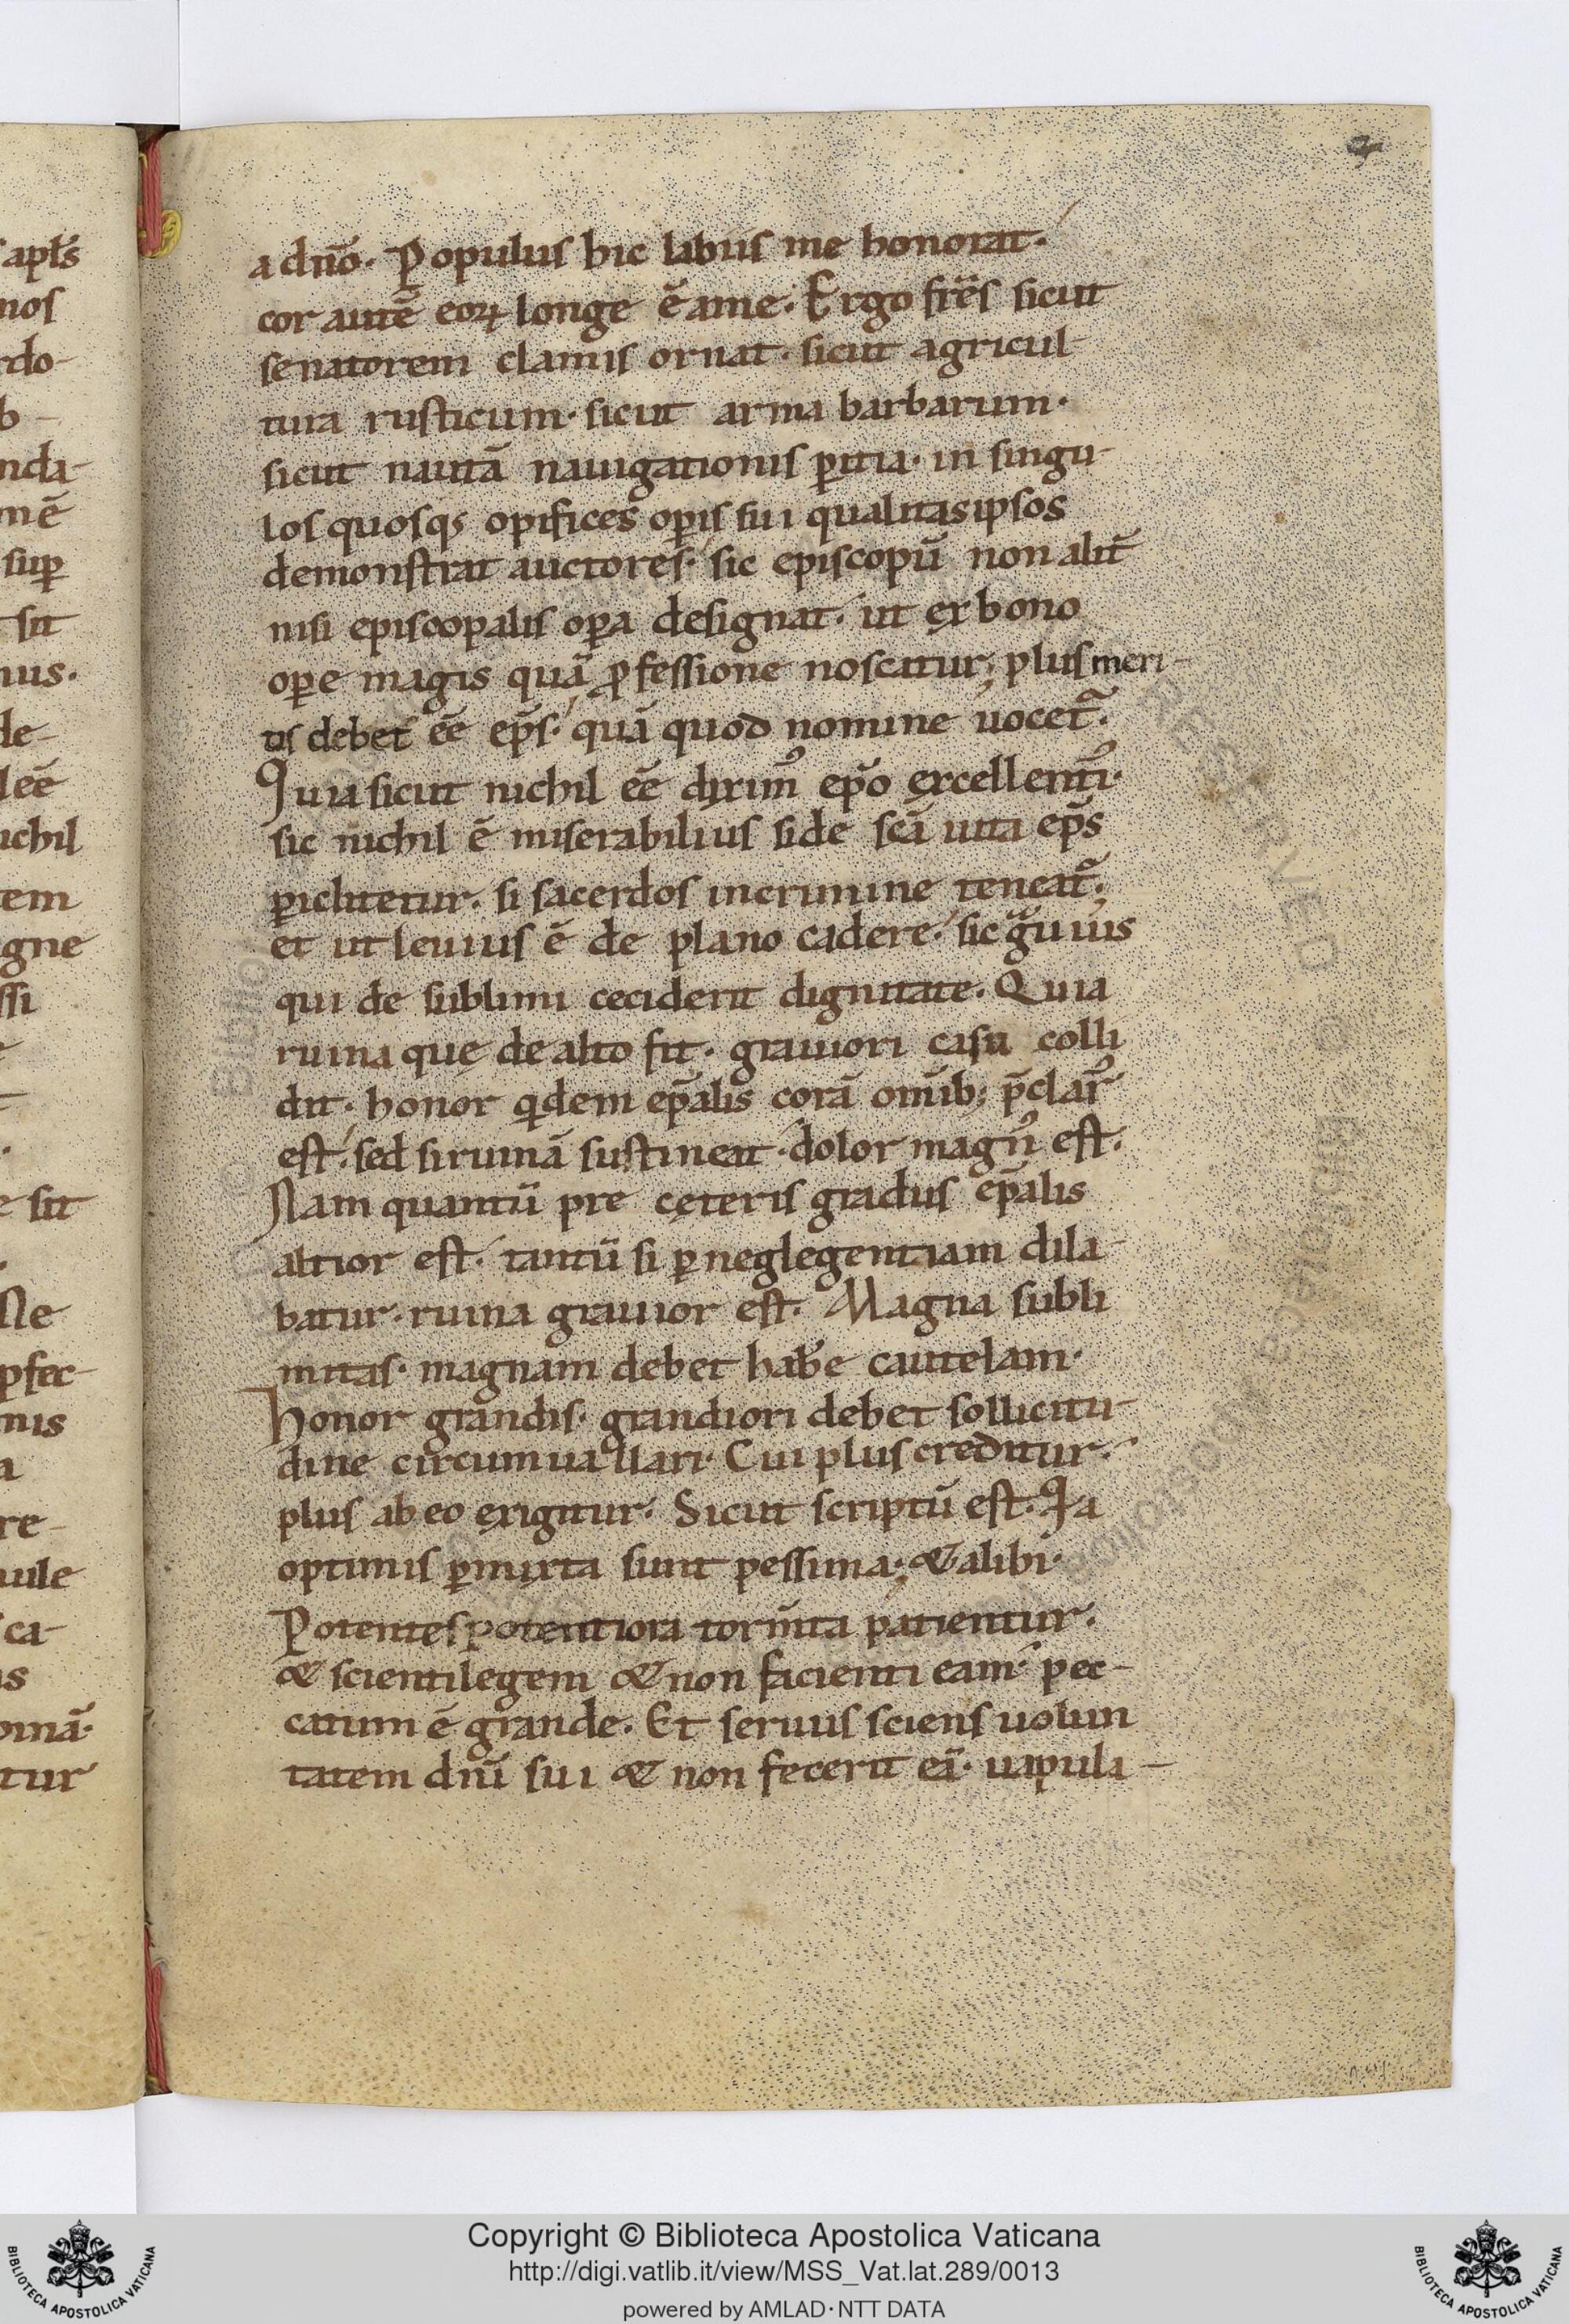 a dn̄o. Populus hic labiis me honorat.
cor autē eoꝝ longe ē ame. Ergo fr̄es sicut
senatorem clamis ornat. sicut agricul
tura rusticum. sicut arma barbarum.
sicut nautā nauigationis ꝑitia. in singu-
los quosq; opifices oꝑis sui qualitas ipsos
demonstrat auctores. sic episcopū non aliđ
nisi episcopalis oꝑa designat. ut ex bono
oꝑe magis quā ꝓfessione noscatur; plus meri-
tis debet eē ep̄s. quā quod nomine uocet᷑.
Quia sicut nichil eē diximꝰ ep̄o excellentiꝰ.
sic nichil ē miserabilius si de scā uita ep̄s
ꝑiclitetur. si sacerdos incrimine teneat᷑;
et ut leuius ē de plano cadere. sic gͣuius
qui de sublimi ceciderit dignitate. Quia
ruina que de alto fit. grauiori casu colli
dit. honor qͥdem ep̄alis corā om̄ib; p̄clarꝰ
est. sed si ruinā sustineat. dolor magnꝰ est.
Nam quantū pre cęteris gradus ep̄alis
altior est. tantū si ꝑ neglegentiam dila-
batur. ruina grauior est. Magna subli
mitas. magnam debet hab̄e cautelam.
honor grandis. grandiori debet sollicitu-
dine circumuallari. Cui plus creditur.
plus ab eo exigitur. Sicut scriptū est. Qͥa
optimis ꝑmixta sunt pessima; & alibi.
Potentes potentiora torm̄ta patientur.
& scienti legem & non facienti eam. pec-
catum ē grande. Et seruus sciens uolun
tatem dn̄i sui & non fecerit eā. uapula-
apl̄s
nos
rdo-
b-
nda-
mē
suꝑ
sit
nus.
de-
leē
ichil
tem
gne
ssi
e sit
Ne
ꝑfec-
nis
a
re-
uule
ca-
is
omā.
tur
Copyright © Biblioteca Apostolica Vaticana
http://digi.vatlib.it/view/MSS_Vat.lat.289/0013
powered by AMLAD·NTT DATA
BIBLIOTECA APOSTOLICA VATICANA
BIBLIOTECA APOSTOLICA VATICANA